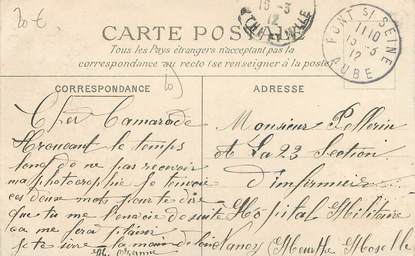 20€
CARTE POSTALE
Tous les Pays étrangers n'acceptant pas la
correspondance au recto (se renseigner à la poste)
PONT S/ SEINE
1110
15-3
12
AUBE
16-3
12
CORRESPONDANCE
Cher Camarade
tronvant le temps
long de ne pas recevoir
ma photographie je t'envoie
ces deux mots pour te dire
que tu me l'envoie de suite
ça me fera plaisir
je te serre la main de loin
ADRESSE
Monsieur Pellerin
A La 23 Section
d'infirmiers
Hôpital Militaire
Nancy Meurthe Moselle